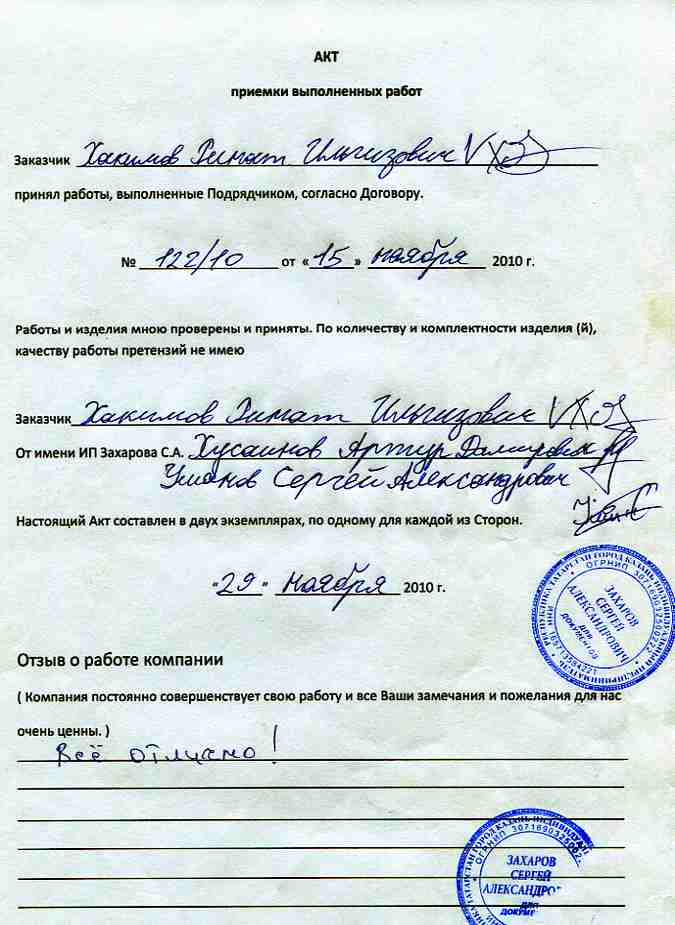 АКТ
приемки выполненных работ
Заказчик Хакимов Ринат Ильгизович
принял работы, выполненные Подрядчиком, согласно Договору.
№ 122/10 от «15» ноября 2010 г.
Работы и изделия мною проверены и приняты. По количеству и комплектности изделия (й),
качеству работы претензий не имею
Заказчик Хакимов Ринат Ильгизович
От имени ИП Захарова С.А. Хусаинов Артур Дамирович
Уманов Сергей Александрович
Настоящий Акт составлен в двух экземплярах, по одному для каждой из Сторон.
"29" ноября 2010 г.
РЕСПУБЛИКА ТАТАРСТАН ГОРОД КАЗАНЬ ИНДИВИДУАЛЬНЫЙ ПРЕДПРИНИМАТЕЛЬ
ОГРНИП
ЗАХАРОВ
СЕРГЕЙ
АЛЕКСАНДРОВИЧ
для
документов
Отзыв о работе компании
( Компания постоянно совершенствует свою работу и все Ваши замечания и пожелания для нас
очень ценны. )
Всё отлично!
ТАТАРСТАН ГОРОД КАЗАНЬ
ОГРНИП
ЗАХАРОВ
СЕРГЕЙ
АЛЕКСАНДРО
для